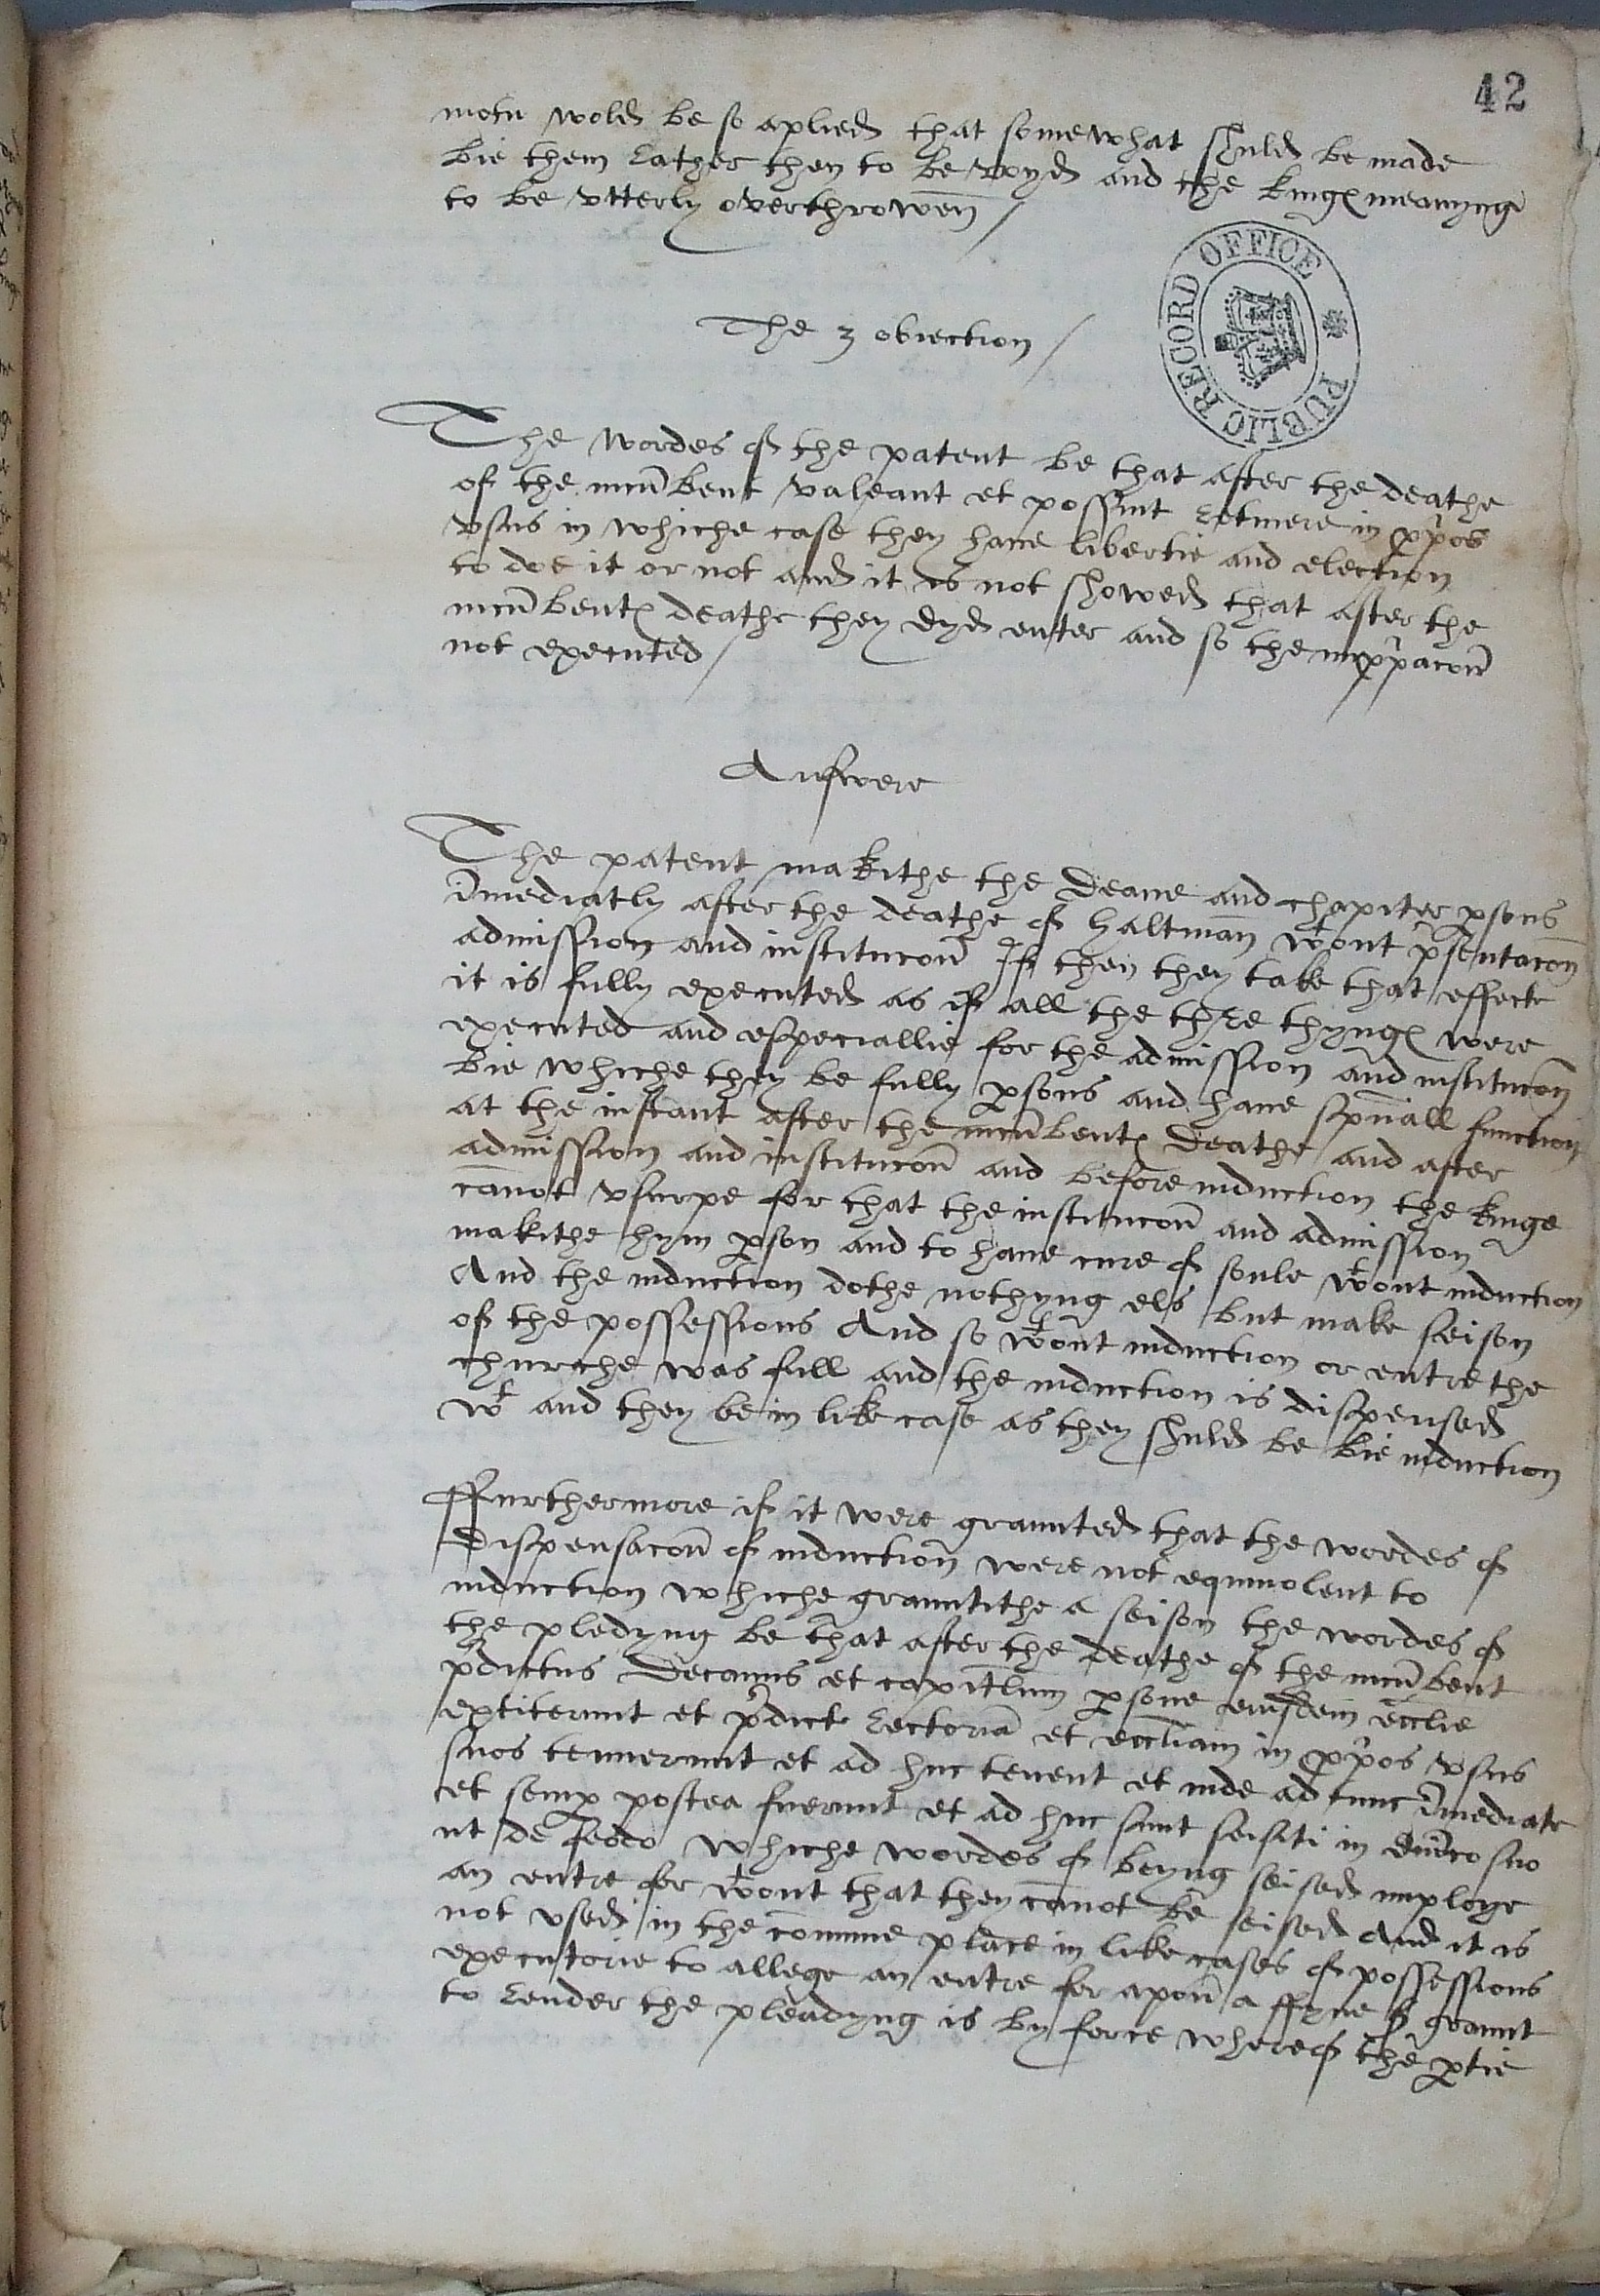 42
motu wold be so aplied that somewhat shuld be made
bie them rather then to be voyd and the kinges meanynge
to be vtterly overthrowen /
PUBLIC RECORD OFFICE
The 3 obiection /
The wordes of the patent be that after the deathe
of the incūbent valeant et possint retinere in pp̄os
vsus in whiche case they haue libertie and election
to doe it or not and it is not showed that after the
incūbentes deathe they dyd enter and so the impp̄iacoñ
not executed /
Answere
The patent makithe the Deane and chapiter psons
īmediatly after the deathe of haltman wtout pn̄sentacon
admission and institucoñ If then they take that effecte
it is fully executed as if all the thre thynges were
executed and especiallie for the admission and institucon
bie whiche they be fully psons and haue spūall function
at the instant after the incūbentes Deathe and after
admission and institucoñ and before induction the kinge
cānot vsurpe for that the institucoñ and admission
makithe hym pson and to haue cure of soule wtout induction
And the induction dothe nothyng els but make seison
of the possessions And so wtout induction or entre the
churche was full and the induction is dispensed
wt and they be in like case as they shuld be bie induction
ffurthermore if it were graunted that the wordes of
Dispensacoñ of induction were not equivolent to
induction whiche grauntithe a seison the wordes of
the pledyng be that after the deathe of the incūbent
p̄dictus Decanus et capitlum psone eiusdem ecclie
extiterunt et p̄dict rectoriā et eccliam in pp̄os vsus
suos tenuerunt et ad huc tenent et inde ad tunc īmediate
et semp postea fuerunt et ad huc sunt seisiti in dn̄ico suo
ut de feodo whiche wordes of beyng seised imploye
an entre for wtout that they cānot be seised And it is
not vsed in the comune place in like cases of possessions
executorie to allege an entre for apoñ a ffyne & graunt
to render the pleadyng is by force whereof the ptie